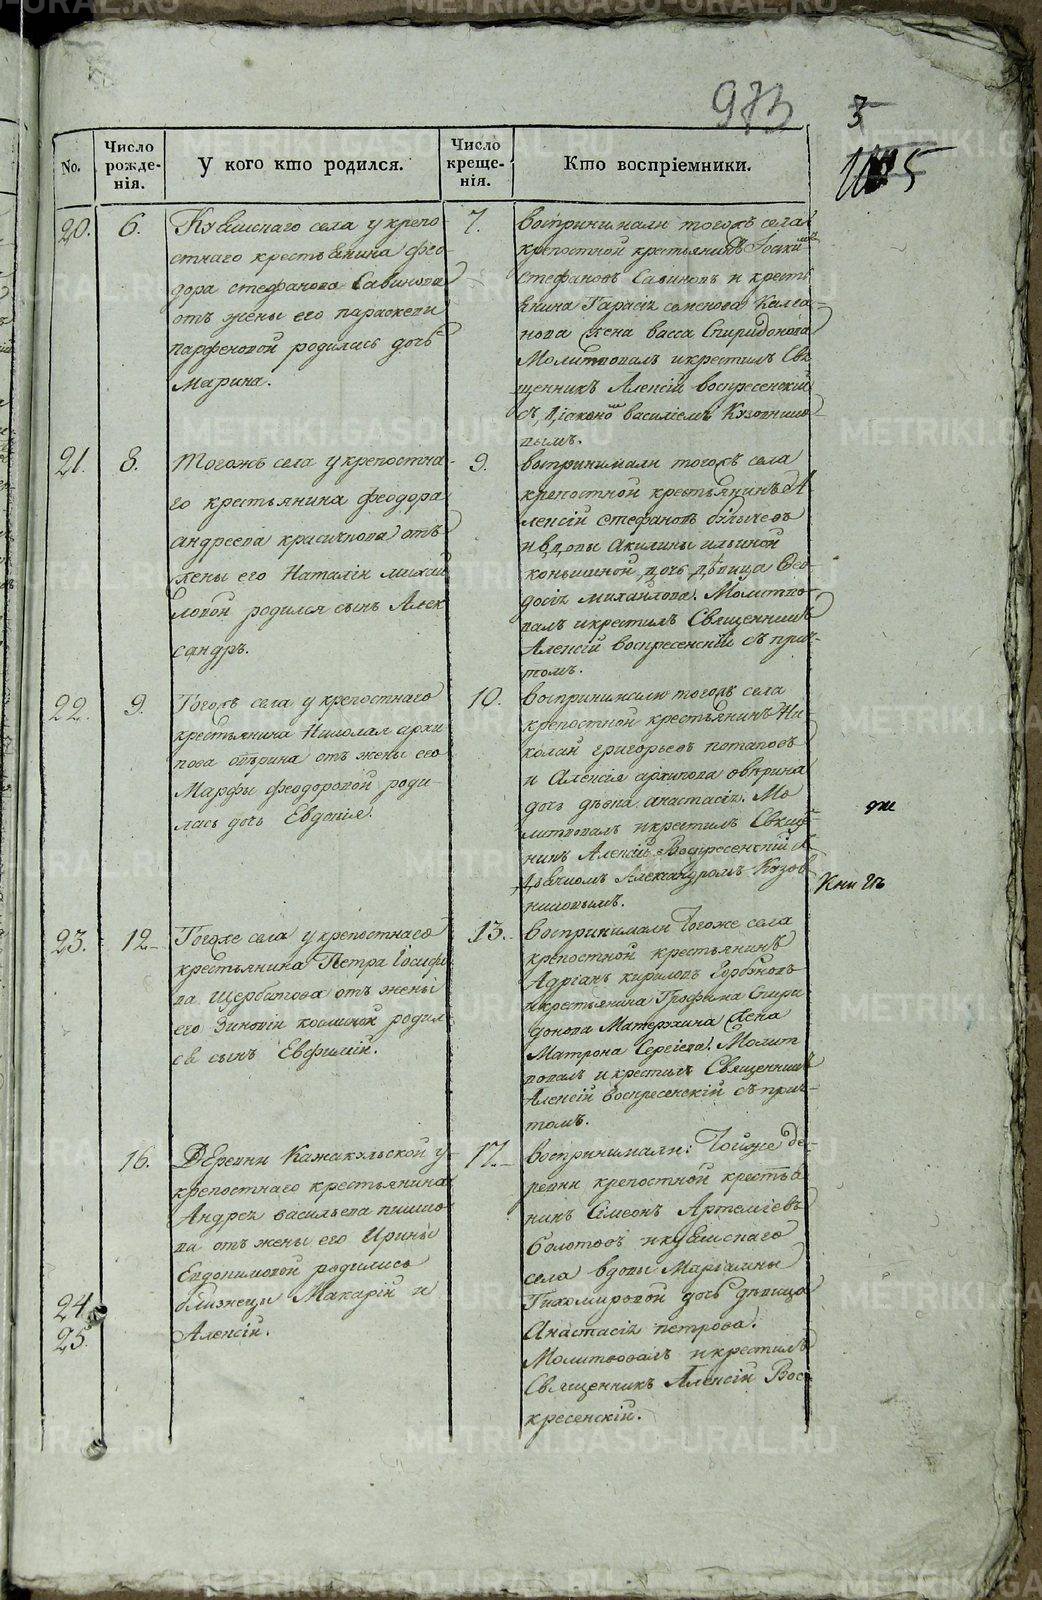 973
3
1005
No.
Число рожде-
нія.
У кого кто родился.
Число креще-
нія.
Кто воспріемники.
20.
6.
села у крепо
стнаго крестьянина Фео
дора стефанова Савинова
отъ жены его параскевы
парфеновой родилась дочь
Марина.
7.
воспринимали тогожъ села
крепостной крестьянинъ
стефановъ Савиновъ и кресть
янина Гарасія семенова
жена васса Спиридонова
Молитвовалъ и крестилъ Свя
щенникъ Алексій воскресенскій
съ діакономъ василіемъ Кузовнико
вымъ.
21.
8.
Тогожъ села у крепостна-
го крестьянина феодора
андреева отъ
жены его Наталіи михай
ловой родился сынъ Алек
сандръ.
9.
воспринимали тогожъ села
крепостной крестьянинъ А
лексій стефановъ
и вдовы Акилины ильиной
коньшиной дочь дѣвица Фео
досія михайлова. Молитво
валъ и крестилъ Священникъ
Алексій воскресенскій съ прич-
томъ.
22.
9.
Тогожъ села у крепостнаго
крестьянина Николая архи
пова отъ жены его
Марфы феодоровой роди-
лась дочь Евдокія.
10.
воспринимали тогожъ села
крепостной крестьянинъ Ни-
колай григорьевъ потаповъ
и Алексія архипова
дочь дѣвка анастасія. Мо
литвовалъ и крестилъ Священ-
никъ Алексій Воскресенскій съ
дьячкомъ Александромъ Кузов
никовымъ.
23.
12
Тогоже села у крепостнаго
крестьянина Петра Іосифо
ва Щербакова отъ жены
его Зиновіи космимой родил
ся сынъ Евфимій.
13.
воспринимали Тогоже села
крепостной крестьянинъ
Адріанъ кириловъ Горбуновъ
и крестьянина Трофима Спири
донова Матерухина жена
Матрона Сергіева. Молит
вовалъ и крестилъ Священникъ
Алексій воскресенскій съ прич-
томъ.
24
25.
16.
Деревни у
крепостнаго крестьянина
Андрея васильева
отъ жены его Ирины
Евдокимовой родились
близнецы Макарій и
Алексій.
17.
воспринимали: Тойже де-
ревни крепостной крестья
нинъ Симеонъ Артеміевъ
Болотовъ и
села вдовы Маріамны
Тихомировой дочь дѣвица
Анастасія петрова.
Молитвовалъ и крестилъ
Священникъ Алексій Вос
кресенскій.
METRIKI.GASO-URAL.RU